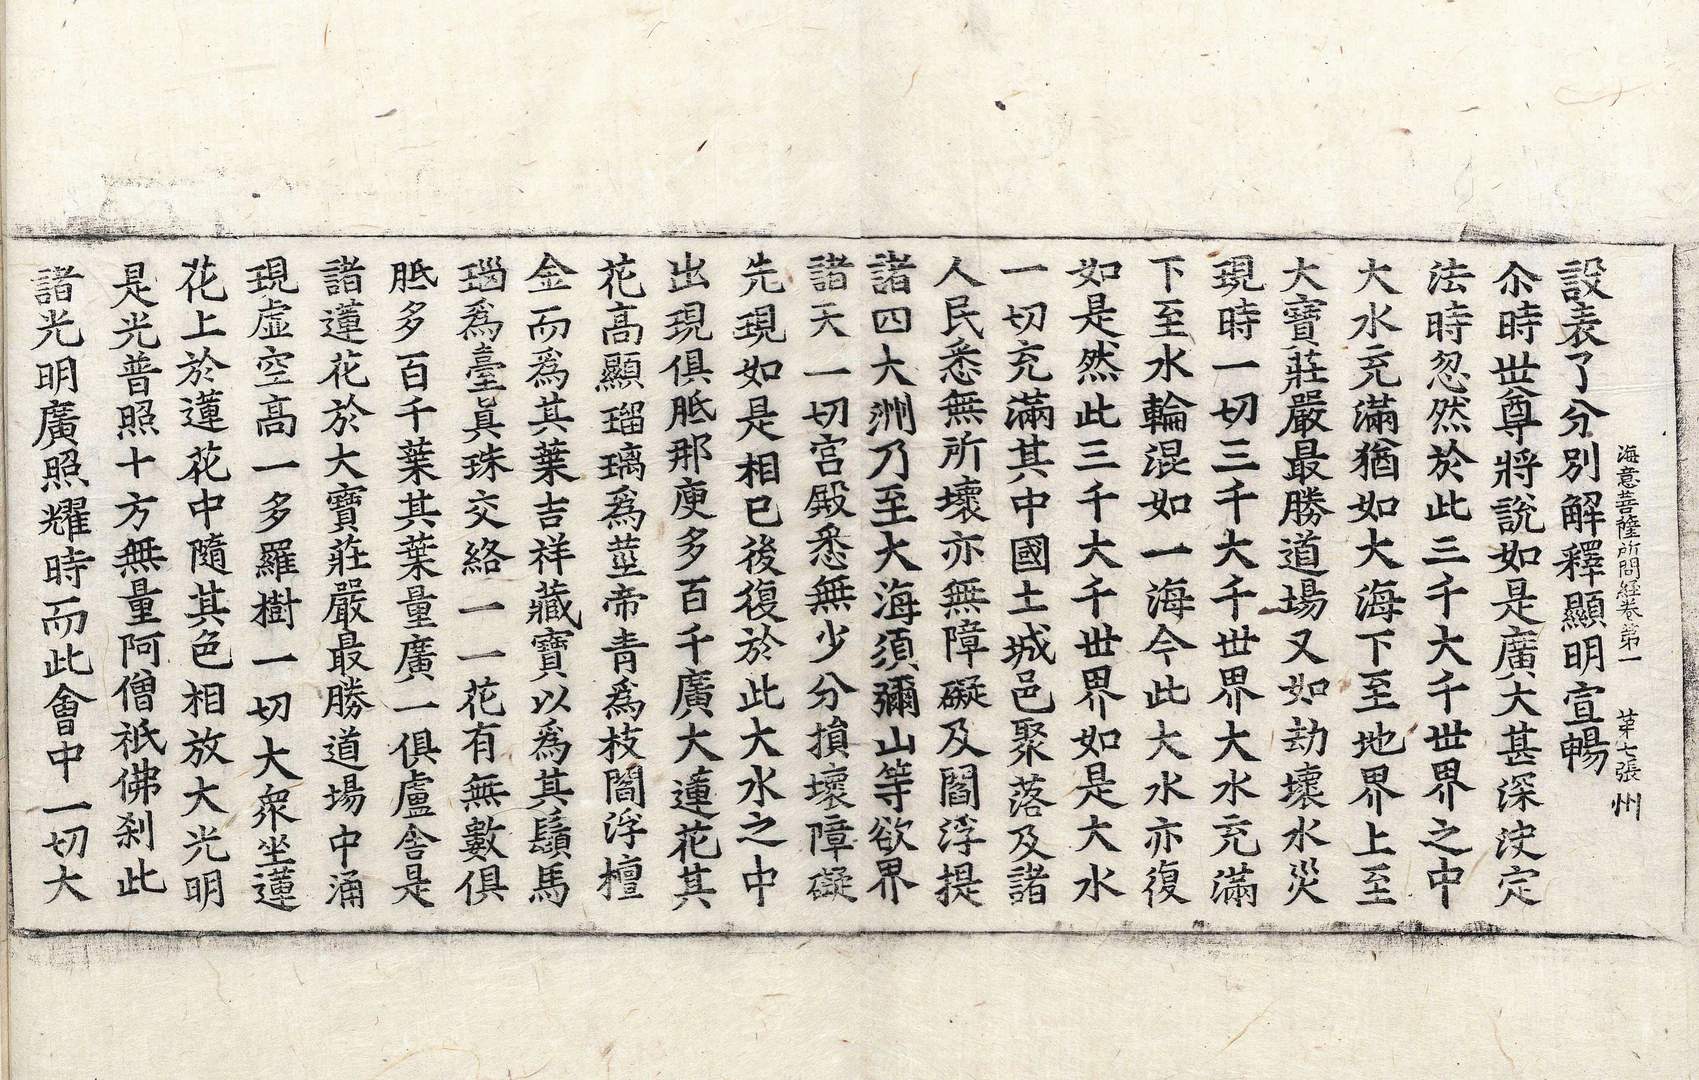 海意菩薩所問経卷第一 第七張 州
設表了分別解釋顯明宣暢
尒時世尊將說如是廣大甚深決定
法時忽然於此三千大千世界之中
大水充滿猶如大海下至地界上至
大寶莊嚴最勝道場又如劫壞水災
現時一切三千大千世界大水充滿
下至水輪混如一海今此大水亦復
如是然此三千大千世界如是大水
一切充滿其中國土城邑聚落及諸
人民悉無所壞亦無障礙及閻浮提
諸四大洲乃至大海須彌山等欲界
諸天一切宮殿悉無少分損壞障礙
先現如是相已後復於此大水之中
出現俱胝那庾多百千廣大蓮花其
花高顯瑠璃爲莖帝青爲枝閻浮檀
金而爲其葉吉祥藏寶以爲其鬚馬
瑙爲臺真珠交絡一一花有無數俱
胝多百千葉其葉量廣一俱盧舍是
諸蓮花於大寶莊嚴最勝道場中涌
現虛空高一多羅樹一切大衆坐蓮
花上於蓮花中隨其色相放大光明
是光普照十方無量阿僧祇佛刹此
諸光明廣照耀時而此會中一切大